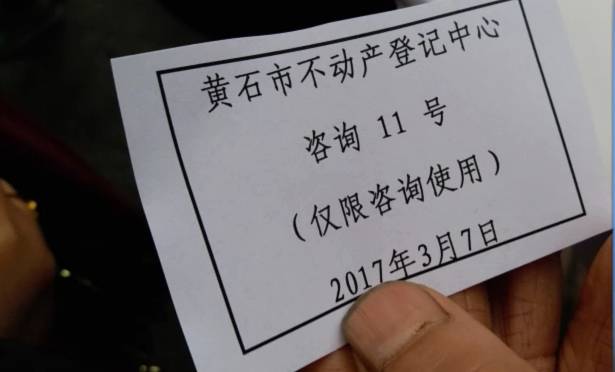 黄石市不动产登记中心
咨询 11 号
（仅限咨询使用）
2017年3月7日